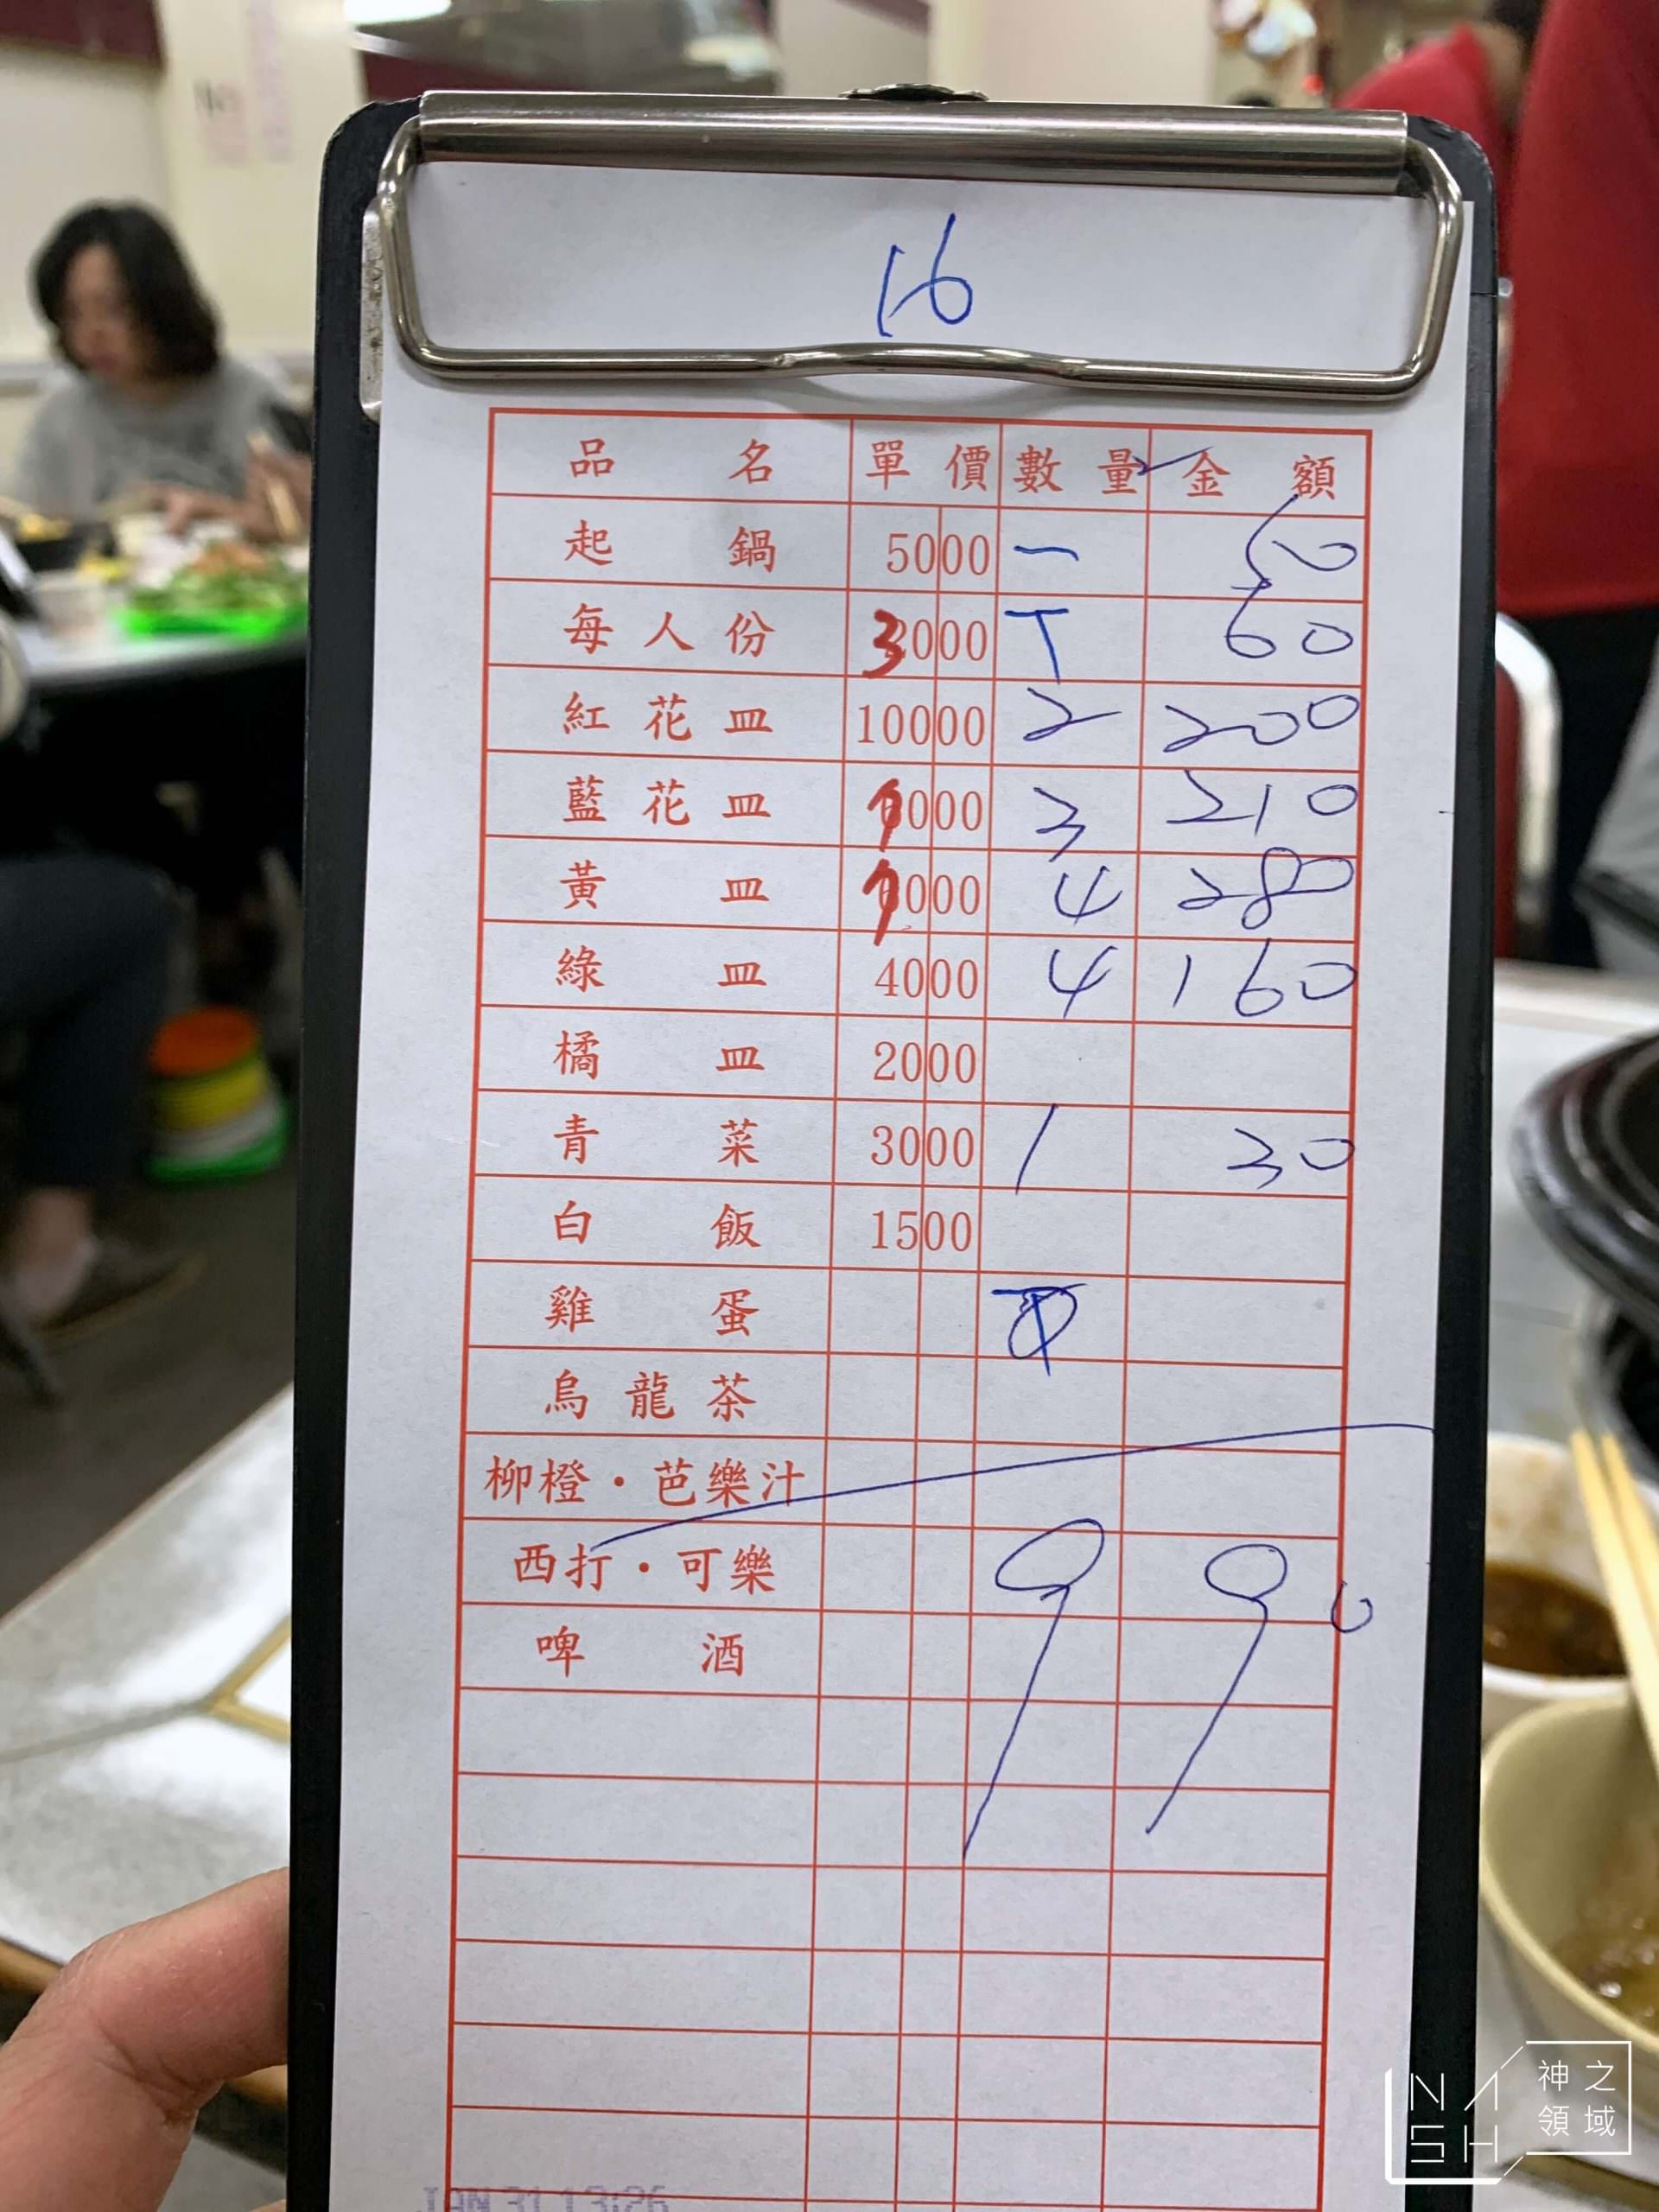 16
品名 單價 數量 金額
起鍋 5000 一 50
每人份 3000 T 60
紅花皿 10000 2 200
藍花皿 7000 3 210
黃皿 7000 4 280
綠皿 4000 4 160
橘皿 2000
青菜 3000 1 30
白飯 1500
雞蛋
烏龍茶
柳橙・芭樂汁
西打・可樂
啤酒
990
JAN 31 13:26
NASH 神之領域